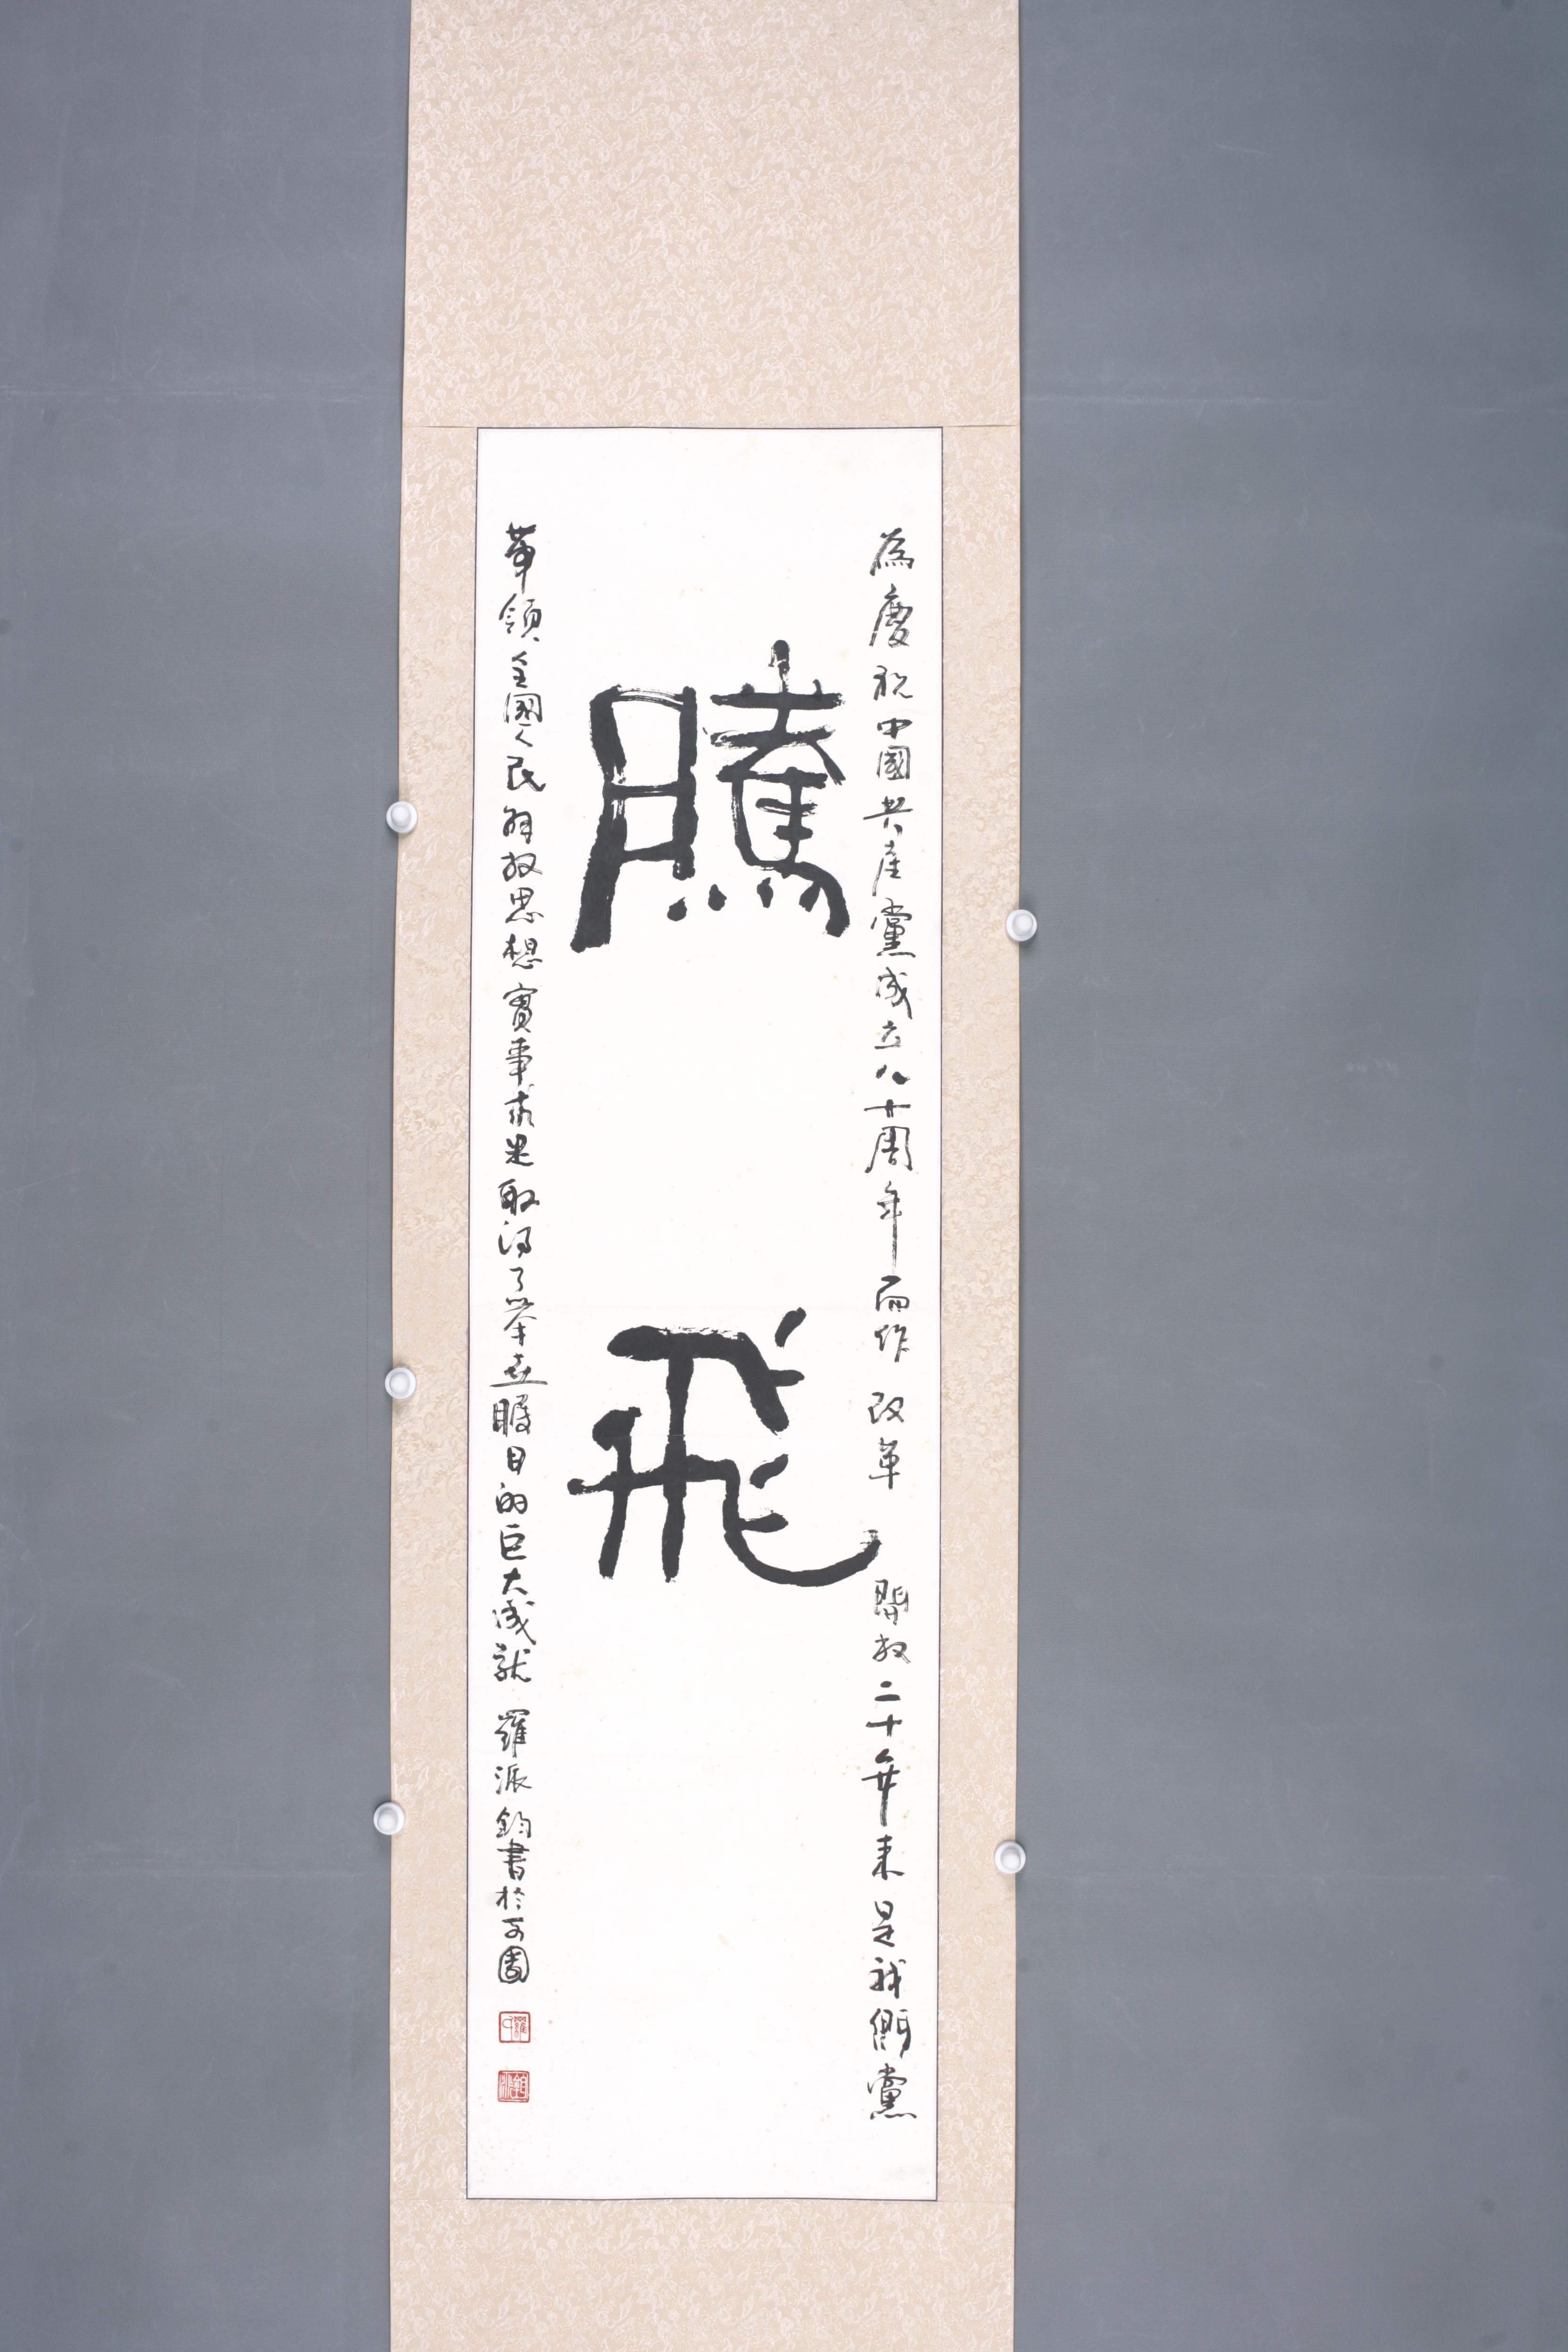 為慶祝中國共產黨成立八十周年而作 改革開放二十年來是我們黨
騰飛
帶領全國人民解放思想實事求是取得了舉世矚目的巨大成就 羅派鈞書於